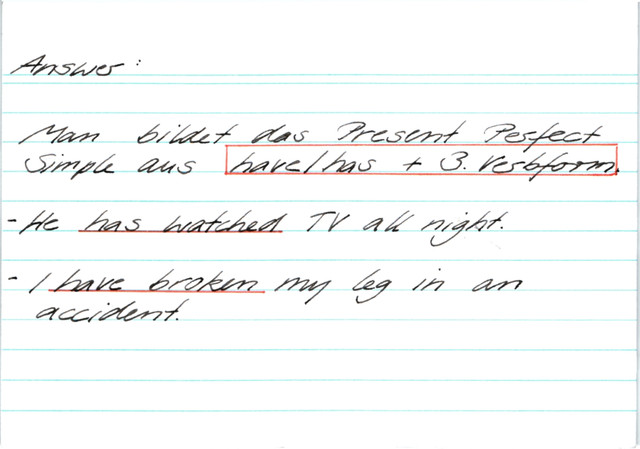 Answer:
Man bildet das Present Perfect
Simple aus have/has + 3. Verbform.
- He has watched TV all night.
- I have broken my leg in an
accident.